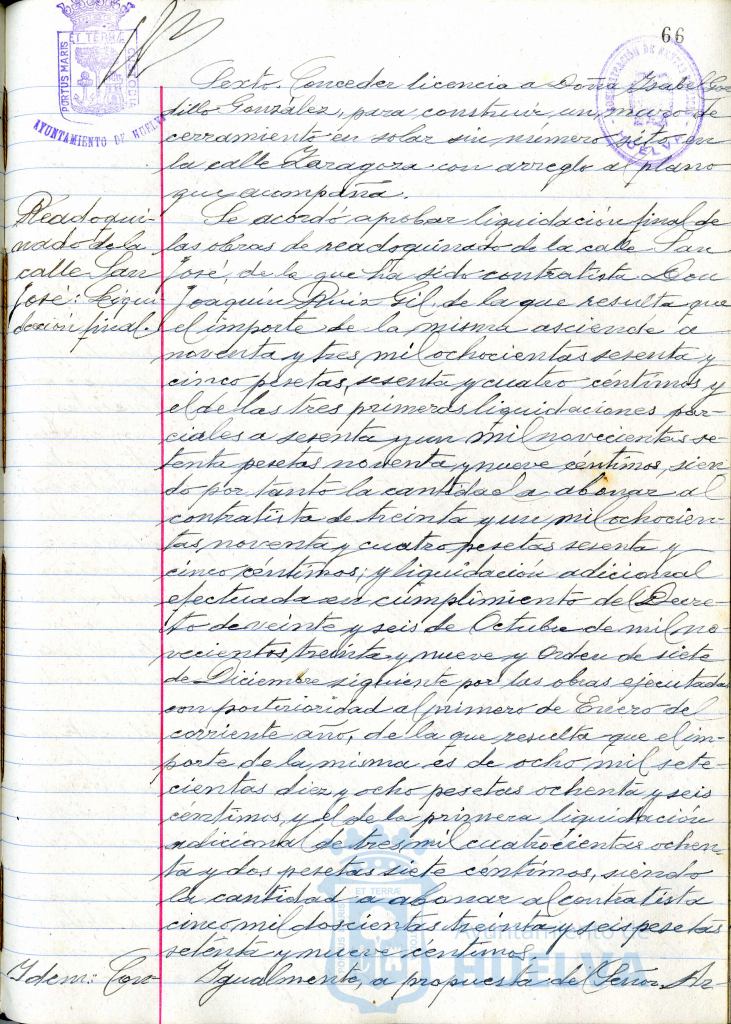 66
PORTUS MARIS
ET TERRÆ
CUSTODIA
AYUNTAMIENTO DE HUELVA
HUELVA
Sexto. Conceder licencia a Doña Ysabel Gor-
dillo González, para construir un muro de
cerramiento en solar sin número, sito en
la calle Zaragoza con arreglo al plano
que acompaña.
Readoqui-
nado de la
calle San
José: Liqui-
dación final.
Se acordó aprobar liquidación final de
las obras de readoquinado de la calle San
José, de la que ha sido contratista Don
Joaquín Ruiz Gil, de la que resulta que
el importe de la misma asciende a
noventa y tres mil ochocientas sesenta y
cinco pesetas, sesenta y cuatro céntimos y
el de las tres primeras liquidaciones par-
ciales a sesenta y un mil novecientas se-
tenta pesetas noventa y nueve céntimos, sien-
do por tanto la cantidad a abonar al
contratista de treinta y un mil ochocien-
tas noventa y cuatro pesetas sesenta y
cinco céntimos; y liquidación adicional
efectuada en cumplimiento del Decre-
to de veinte y seis de Octubre de mil no-
vecientos treinta y nueve y Orden de siete
de Diciembre siguiente por las obras ejecutadas
con posterioridad al primero de Enero del
corriente año, de la que resulta que el im-
porte de la misma es de ocho mil sete-
cientas diez y ocho pesetas ochenta y seis
céntimos, y el de la primera liquidación
adicional de tres mil cuatrocientas ochen-
ta y dos pesetas siete céntimos, siendo
la cantidad a abonar al contratista
cinco mil doscientas treinta y seis pesetas
setenta y nueve céntimos.
Ydem: Con-
Ygualmente, a propuesta del Señor Ar-
PORTUS MARIS
ET TERRÆ
CUSTODIA
Ayuntamiento de
HUELVA